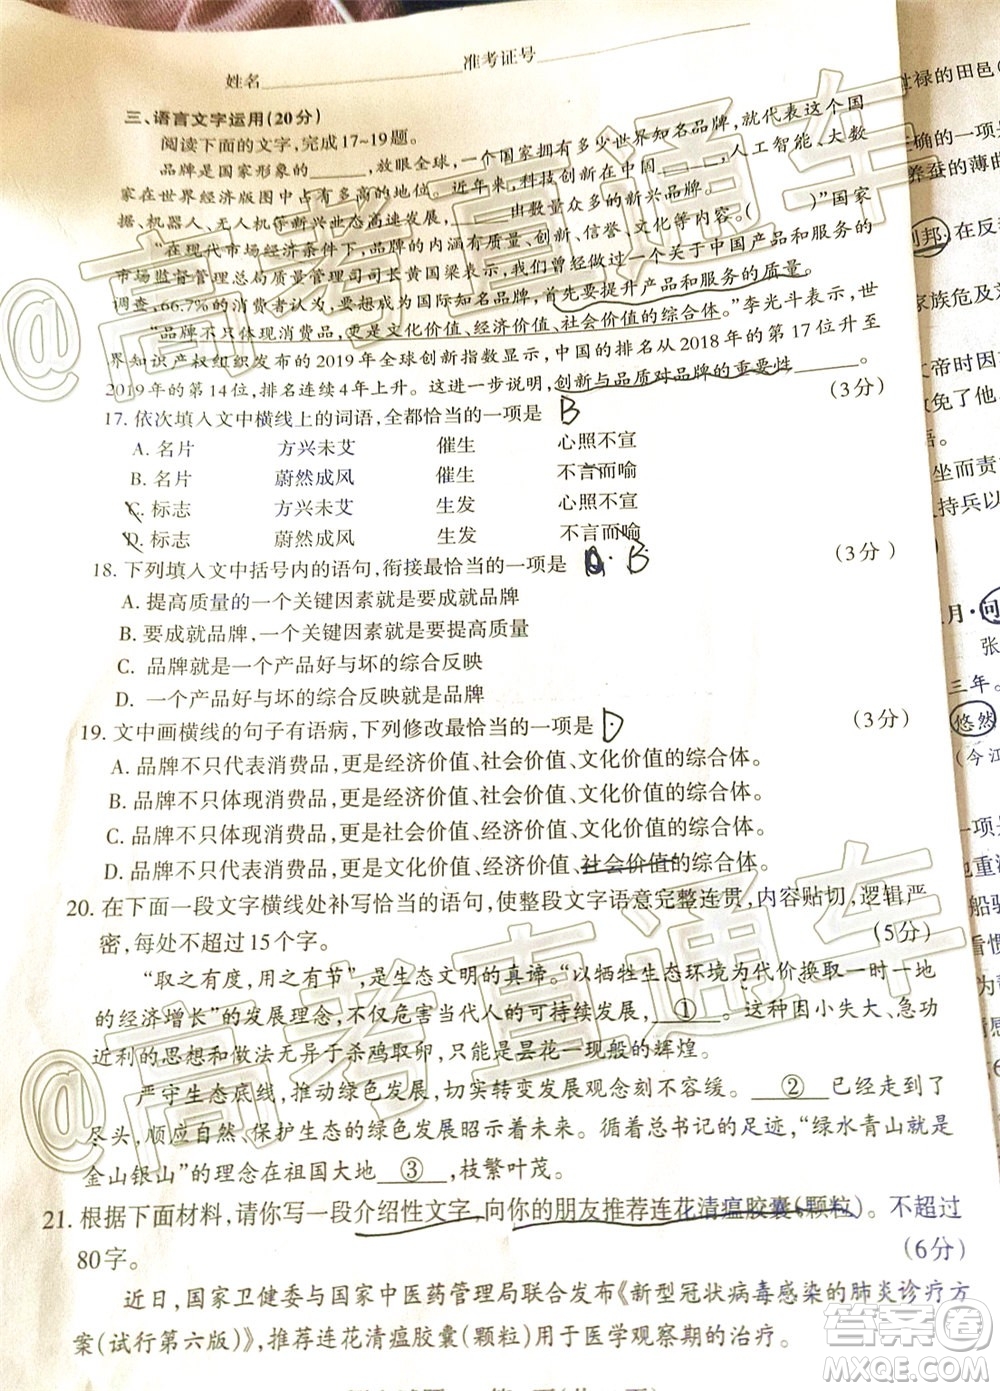 姓名 准考证号
三、语言文字运用(20分)
阅读下面的文字,完成17~19题。
品牌是国家形象的______,放眼全球,一个国家拥有多少世界知名品牌,就代表这个国
家在世界经济版图中占有多高的地位。近年来,科技创新在中国______,人工智能、大数
据、机器人、无人机等新兴业态高速发展,______出数量众多的新兴品牌。
“在现代市场经济条件下,品牌的内涵有质量、创新、信誉、文化等内容。(  )”国家
市场监督管理总局质量管理司司长黄国梁表示,我们曾经做过一个关于中国产品和服务的
调查,66.7%的消费者认为,要成就国际知名品牌,首先要提升产品和服务的质量。
“品牌不只体现消费品,更是文化价值、经济价值、社会价值的综合体。”李光斗表示,世
界知识产权组织发布的2019年全球创新指数显示,中国的排名从2018年的第17位升至
2019年的第14位,排名连续4年上升。这进一步说明,创新与品质对品牌的重要性______。
17. 依次填入文中横线上的词语,全都恰当的一项是 B (3分)
A. 名片 方兴未艾 催生 心照不宣
B. 名片 蔚然成风 催生 不言而喻
C. 标志 方兴未艾 生发 心照不宣
D. 标志 蔚然成风 生发 不言而喻
18. 下列填入文中括号内的语句,衔接最恰当的一项是 B (3分)
A. 提高质量的一个关键因素就是要成就品牌
B. 要成就品牌,一个关键因素就是要提高质量
C. 品牌就是一个产品好与坏的综合反映
D. 一个产品好与坏的综合反映就是品牌
19. 文中画横线的句子有语病,下列修改最恰当的一项是 D (3分)
A. 品牌不只代表消费品,更是经济价值、社会价值、文化价值的综合体。
B. 品牌不只体现消费品,更是经济价值、社会价值、文化价值的综合体。
C. 品牌不只体现消费品,更是社会价值、经济价值、文化价值的综合体。
D. 品牌不只代表消费品,更是文化价值、经济价值、社会价值的综合体。
20. 在下面一段文字横线处补写恰当的语句,使整段文字语意完整连贯,内容贴切,逻辑严
密,每处不超过15个字。 (5分)
“取之有度,用之有节”,是生态文明的真谛。“以牺牲生态环境为代价换取一时一地
的经济增长”的发展理念,不仅危害当代人的可持续发展,①。这种因小失大、急功
近利的思想和做法无异于杀鸡取卵,只能是昙花一现般的辉煌。
严守生态底线,推动绿色发展,切实转变发展理念刻不容缓。②已经走到了
尽头,顺应自然、保护生态的绿色发展昭示着未来。循着总书记的足迹,“绿水青山就是
金山银山”的理念在祖国大地③,枝繁叶茂。
21. 根据下面材料,请你写一段介绍性文字,向你的朋友推荐连花清瘟胶囊(颗粒)。不超过
80字。 (6分)
近日,国家卫健委与国家中医药管理局联合发布《新型冠状病毒感染的肺炎诊疗方
案(试行第六版)》,推荐连花清瘟胶囊(颗粒)用于医学观察期的治疗。
禄的田邑
确的一项
养蚕的薄曲
,在反
家族危及
帝时因
免了他
语。
坐而责
持兵以
月·问
张
三年。
悠然
(今江
@高考直通车
@高考直通车
答案圈
MXQE.COM